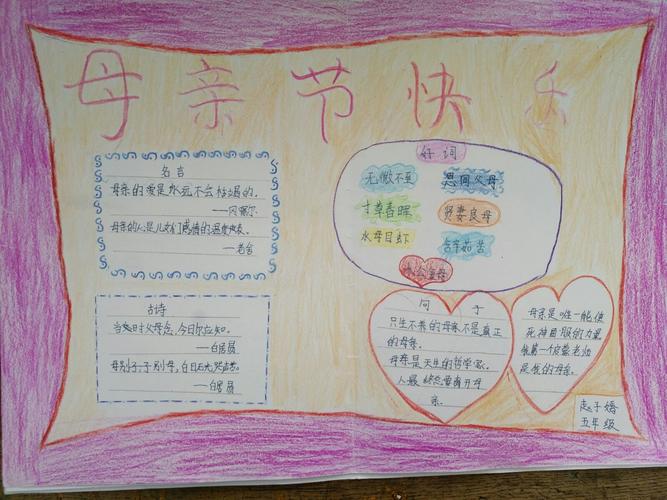 母亲节快乐
名言
母亲的爱是永远不会枯竭的。
母亲的心是儿女们感情的温度表。
——老舍
古诗
当如时父母念,今日你应知。
——白居易
母别子,子别母,白日无光哭声苦。
——白居易
好词
无微不至
恩同父母
寸草春晖
贤妻良母
水母目虾
含辛茹苦
句子
只生不养的母亲不是真正
的母亲。
母亲是天生的哲学家。
人最
离开母
亲。
母亲是唯一能使
死神屈服的力量
我第一个启蒙老师
是我的母亲。
赵子嫣
五年级